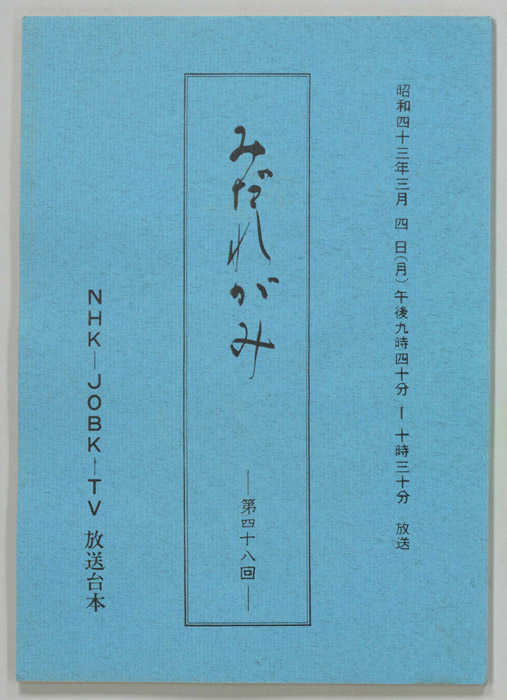 昭和四十三年三月 四 日(月)午後九時四十分 ― 十時三十分 放送
みだれがみ
―第四十八回―
NHK―JOBK―TV 放送台本